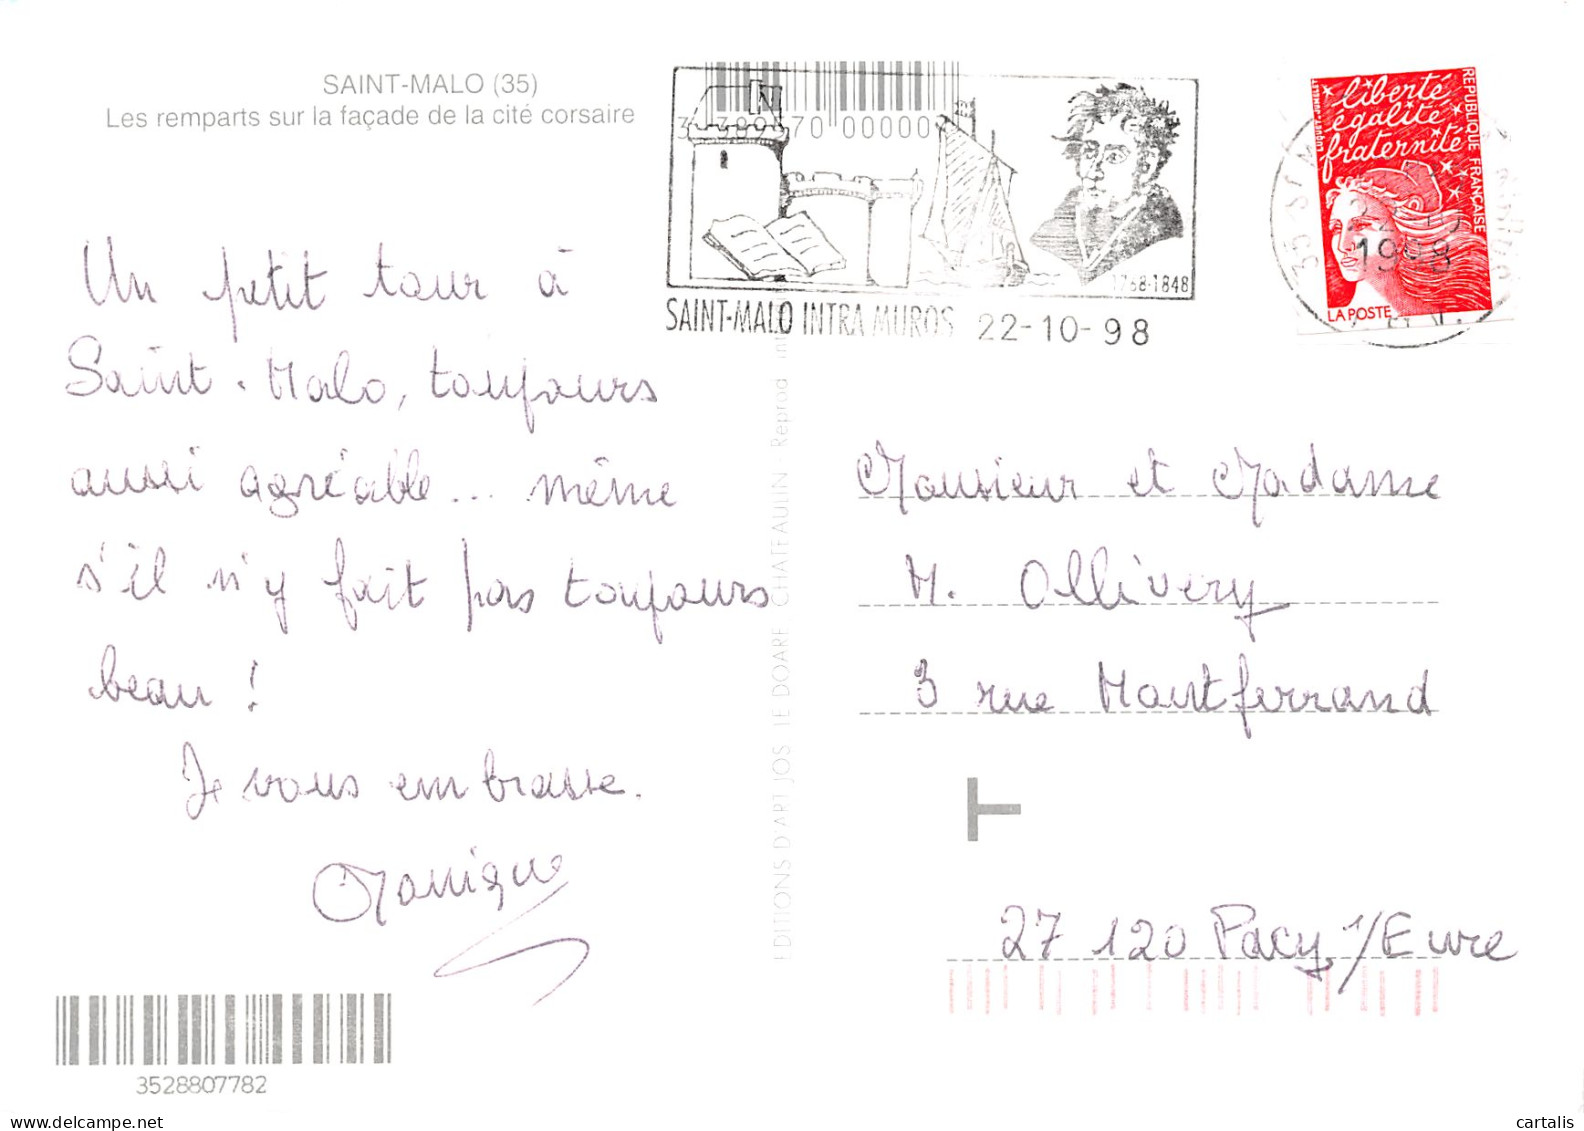 SAINT-MALO (35)
Les remparts sur la façade de la cité corsaire
Un petit tour à
Saint-Malo, toujours
aussi agréable... même
s'il n'y fait pas toujours
beau !
Je vous embrasse.
Monique
3528807782
EDITIONS D'ART JOS LE DOARE CHATEAULIN - Reprod
00000
1768-1848
SAINT-MALO INTRA MUROS 22-10-98
liberté
égalité
fraternité
REPUBLIQUE FRANÇAISE
LA POSTE
1998
Monsieur et Madame
M. Ollivery
3 rue Montferrand
T
27 120 Pacy s/Eure
www.delcampe.net
cartalis